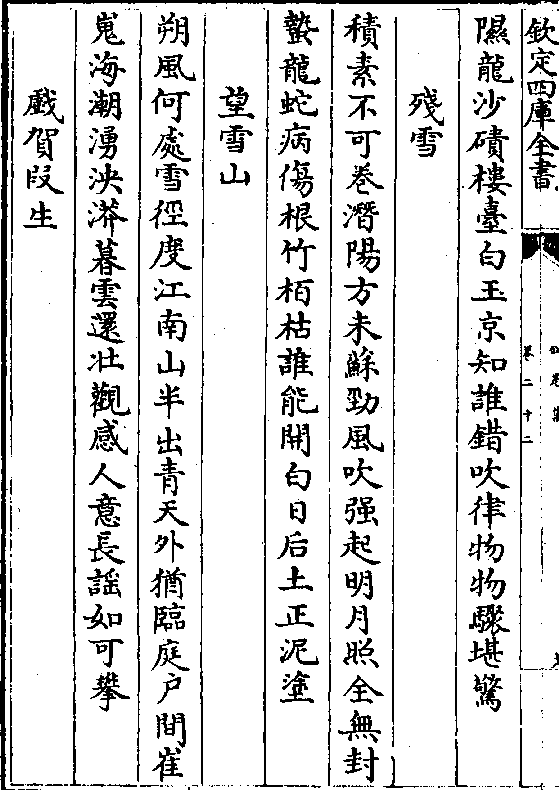 欽定四庫全書
卷二十二
隰龍沙磧樓臺白玉京知誰錯吹律物物驟堪驚
殘雪
積素不可卷潛陽方未蘇勁風吹强起明月照全無封
蟄龍蛇病傷根竹栢枯誰能開白日后土正泥塗
望雪山
朔風何處雪徑度江南山半出青天外猶臨庭户間崔
嵬海潮湧泱漭暮雲還壯觀感人意長謡如可攀
戲賀叚生